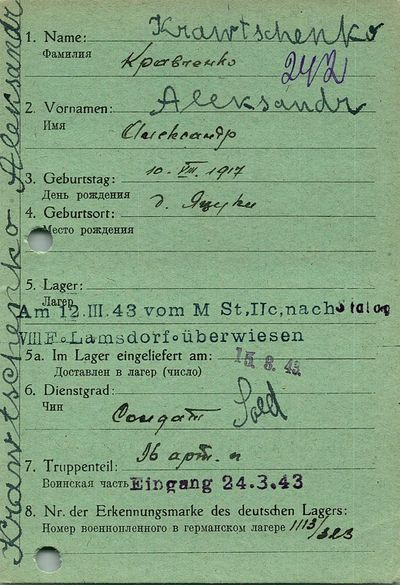 Krawtschenko Aleksandr
1. Name: Krawtschenko
Фамилия Кравченко
242
2. Vornamen: Aleksandr
Имя Александр
3. Geburtstag: 10. VIII. 1917
День рождения
4. Geburtsort: д. Яцуки
Место рождения
5. Lager:
Лагерь
Am 12.III.43 vom M St,IIc,nach Stalag
VIII F. Lamsdorf.überwiesen
5a. Im Lager eingeliefert am: 15. 3. 43
Доставлен в лагерь (число)
6. Dienstgrad: Sold
Чин Солдат
7. Truppenteil: 96 арт. п
Воинская часть Eingang 24.3.43
8. Nr. der Erkennungsmarke des deutschen Lagers:
Номер военнопленного в германском лагере 1113/323